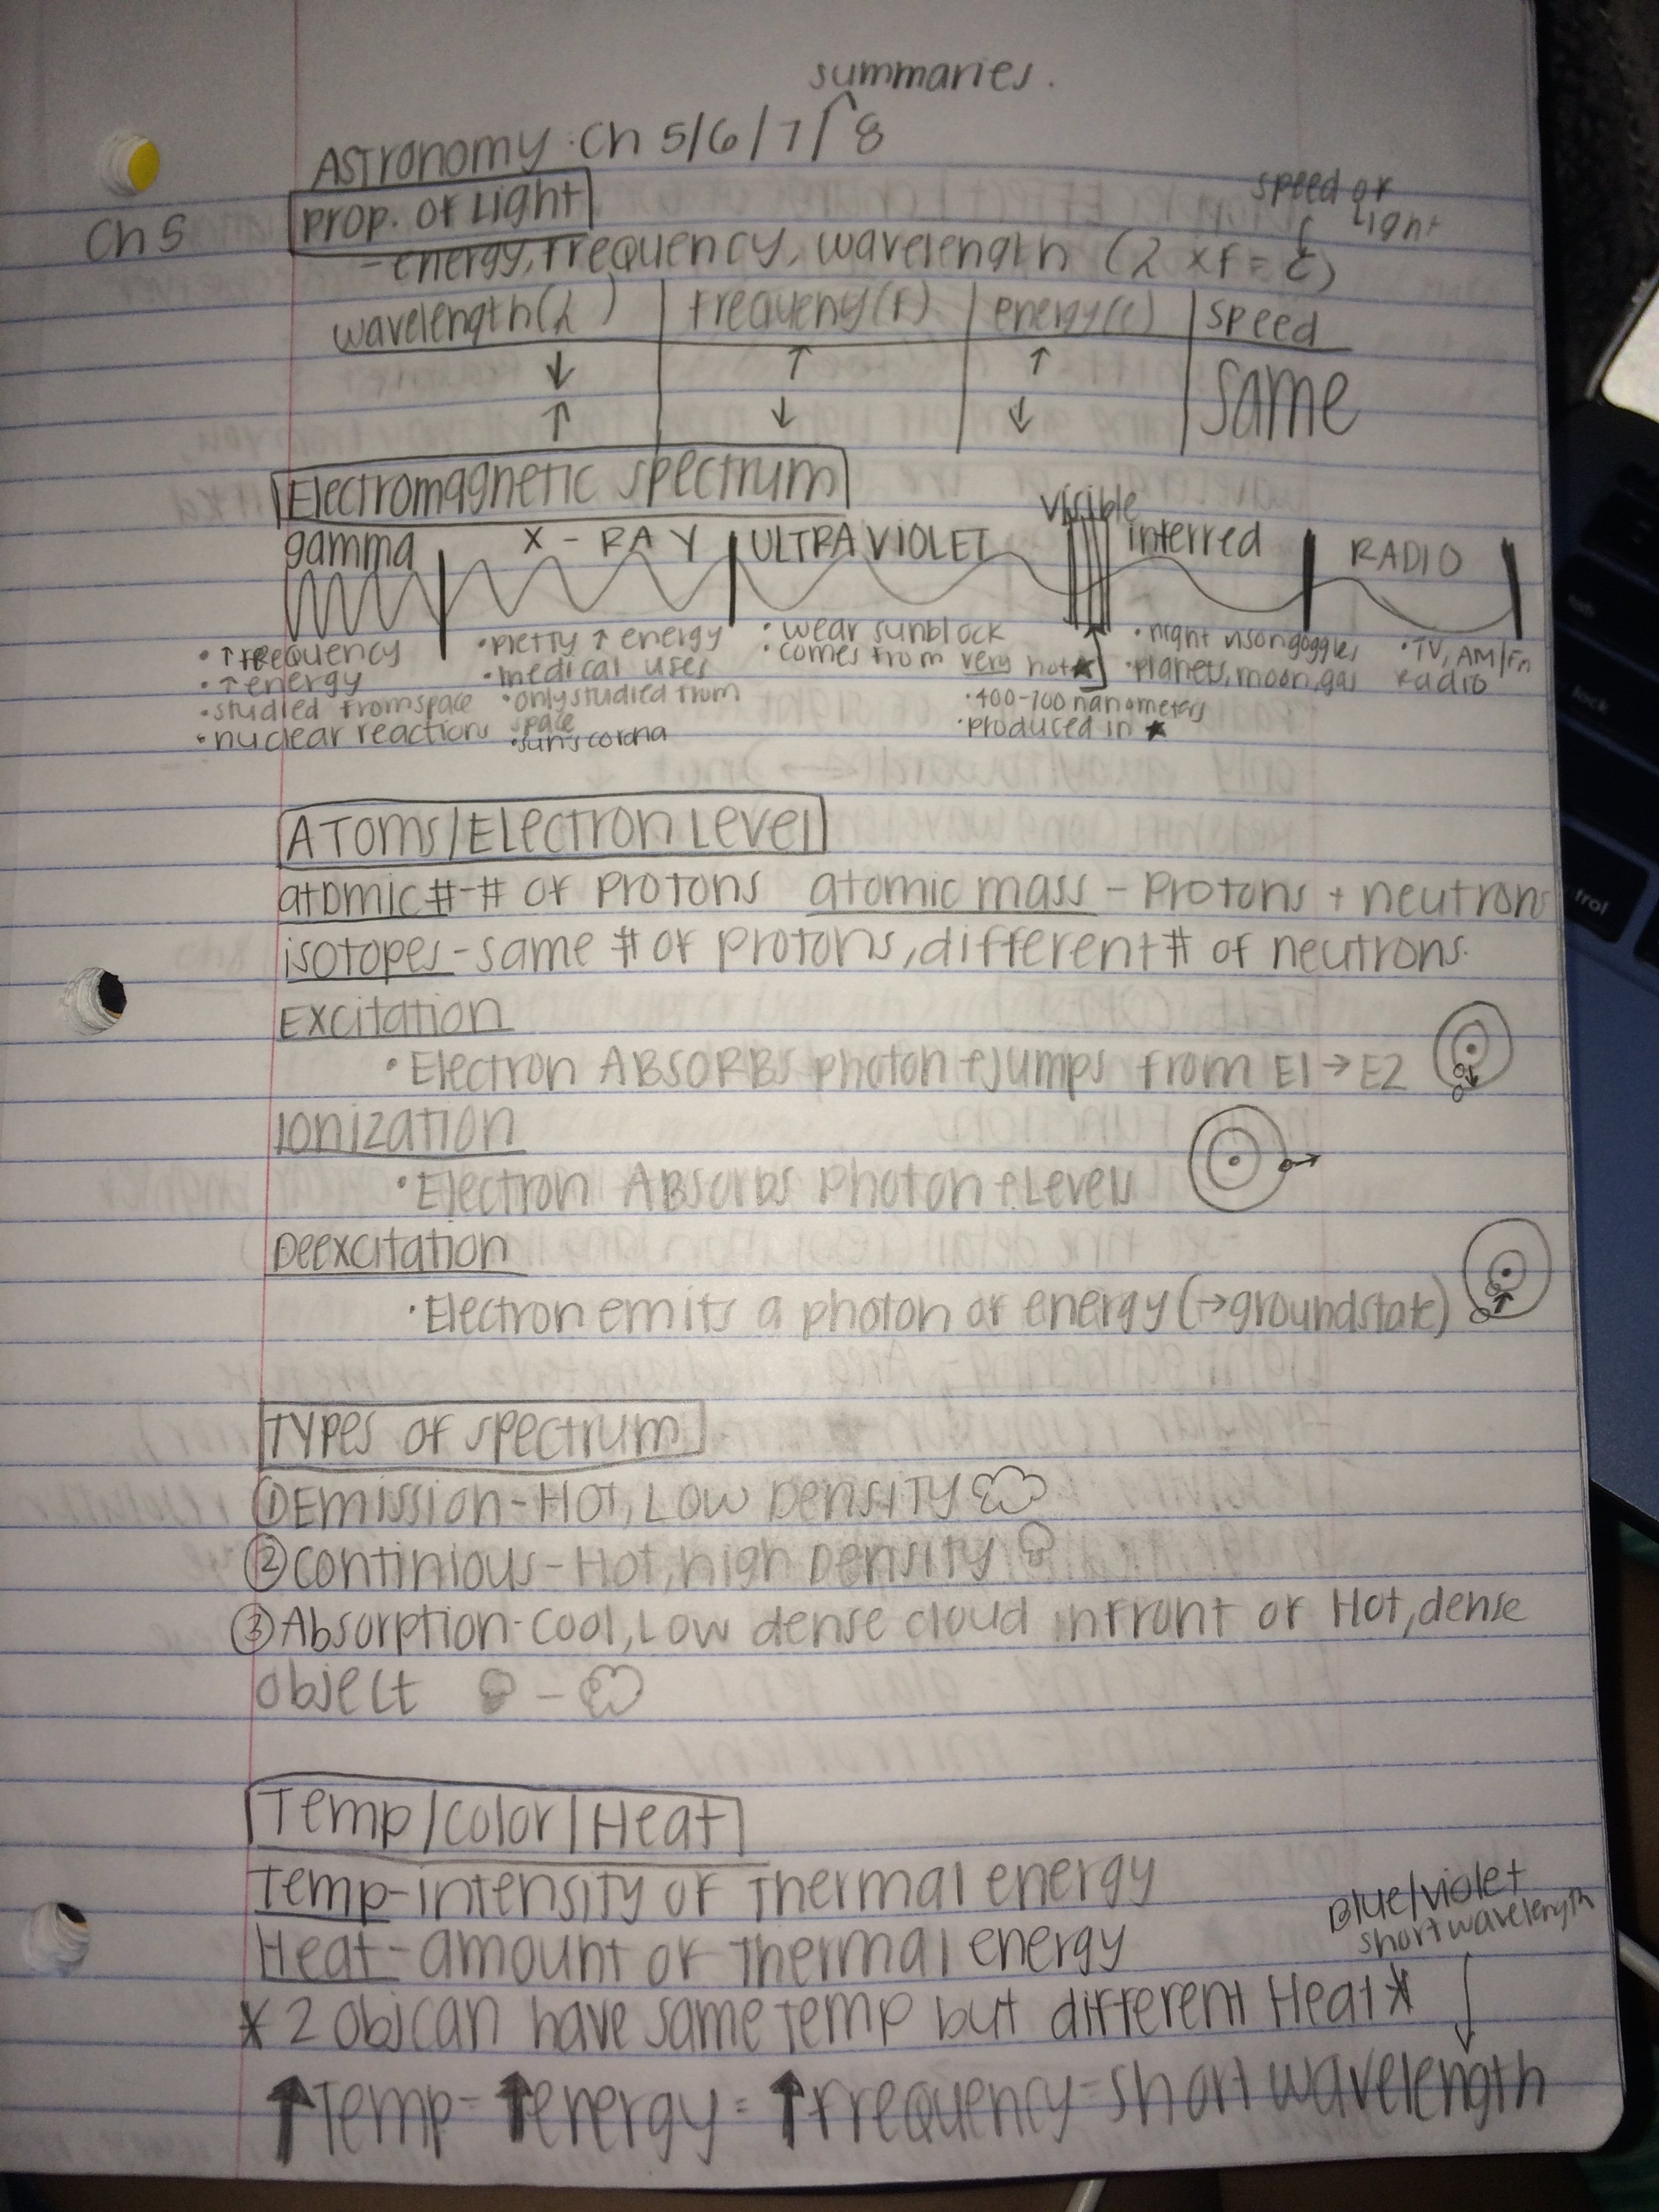 summaries.
Astronomy Ch 5/6/7/8
Ch 5
Prop. of Light
speed of
Light
- energy, frequency, wavelength (λ x f = c)
wavelength (λ) frequeny (f) energy (e) speed
↓ ↑ ↑ same
↑ ↓ ↓
Electromagnetic spectrum
visible
gamma X-RAY ULTRAVIOLET interred RADIO
• ↑ frequency
• ↑ energy
• studied from space
• nuclear reactions
• pretty ↑ energy
• medical uses
• only studied from
space
• sun's corona
• wear sunblock
• comes from very hot ★
• 400-700 nanometers
• produced in ★
• night vison goggles
• planets, moon, gas
• TV, AM/Fm
Radio
Atoms/Electron Level
atomic # - # of protons atomic mass - Protons + neutrons
isotopes - same # of protons, different # of neutrons.
Excitation
• Electron ABSORBS photon + jumps from E1 → E2
Ionization
• Electron Absorbs Photon + Leves
Deexcitation
• Electron emits a photon of energy (→ ground state)
Types of spectrum
① Emission - Hot, Low Density
② Continious - Hot, high Density
③ Absorption - Cool, Low dense cloud infront of Hot, dense
object -
Temp/Color/Heat
Temp - intensity of thermal energy
Heat - amount of thermal energy
* 2 obj can have same temp but different Heat *
Blue/violet
short wavelength
↓
↑ Temp = ↑ energy = ↑ frequency = short wavelength